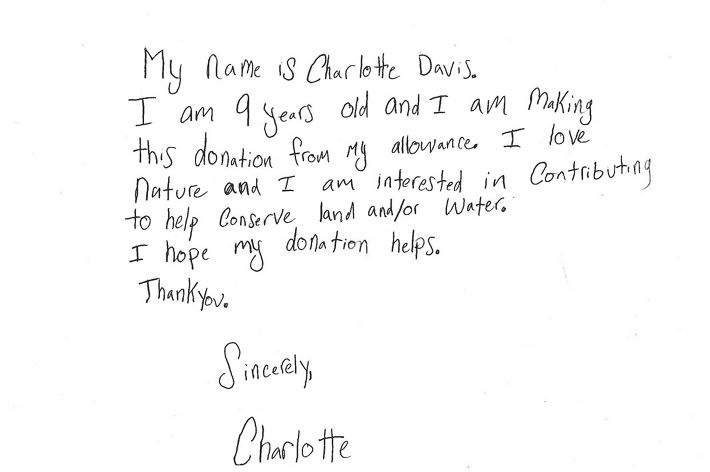 My name is Charlotte Davis.
I am 9 years old and I am Making
this donation from my allowance. I love
Nature and I am interested in Contributing
to help Conserve land and/or Water.
I hope my donation helps.
Thankyou.
Sincerely,
Charlotte